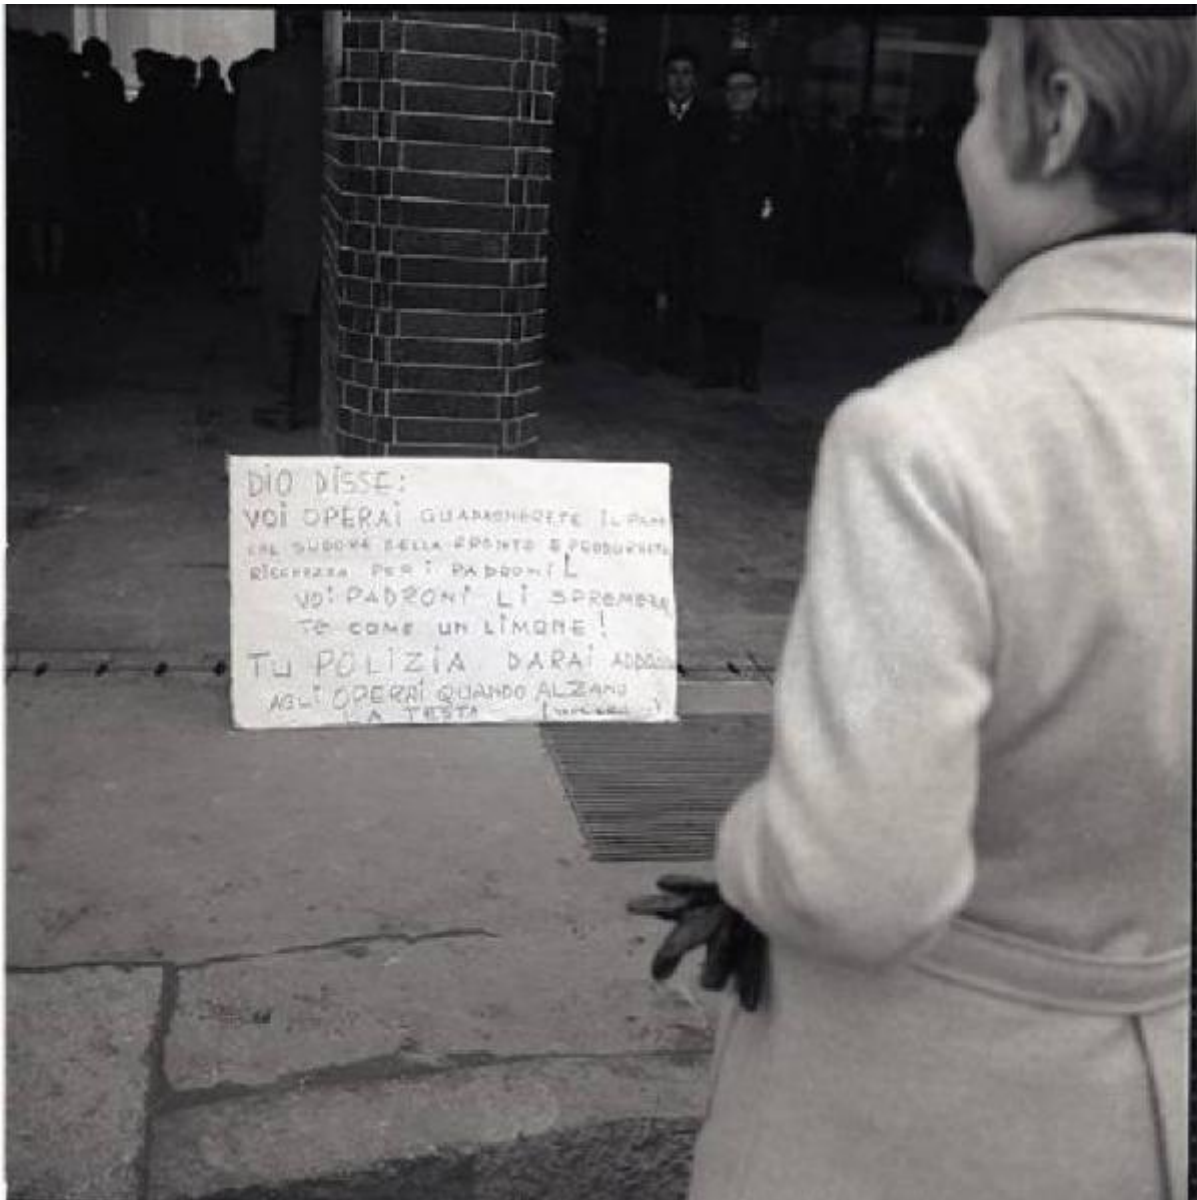 DIO DISSE:
VOI OPERAI GUADAGNERETE IL PANE
COL SUDORE DELLA FRONTE E PRODURRETE
RICCHEZZA PER I PADRONI!
VOI PADRONI LI SPREMERE
TE COME UN LIMONE!
TU POLIZIA DARAI ADDOSSO
AGLI OPERAI QUANDO ALZANO
LA TESTA